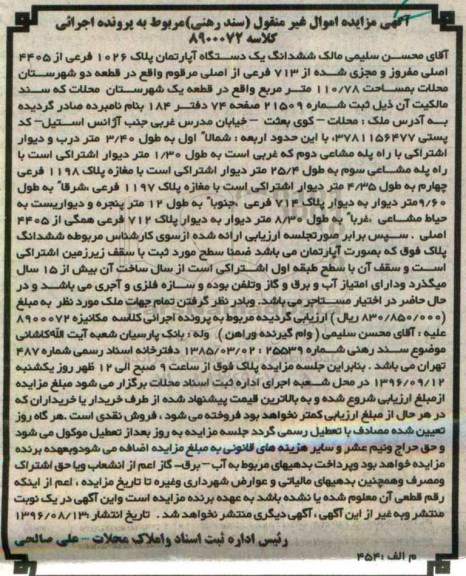 آگهی مزایده اموال غیر منقول (سند رهنی)مربوط به پرونده اجرائی
کلاسه ۸۹۰۰۰۷۲
آقای محسن سلیمی مالک ششدانگ یک دستگاه آپارتمان پلاک ۱۰۲۶ فرعی از ۴۴۰۵
اصلی مفروز و مجزی شده از ۷۱۳ فرعی از اصلی مرقوم واقع در قطعه دو شهرستان
محلات بمساحت ۱۱۰/۷۸ متر مربع واقع در قطعه یک شهرستان محلات که سند
مالکیت آن ذیل ثبت شماره ۲۱۵۰۹ صفحه ۷۴ دفتر ۱۸۴ بنام نامبرده صادر گردیده
به آدرس ملک : محلات – کوی بعثت – خیابان مدرس غربی جنب آژانس استیل- کد
پستی ۳۷۸۱۱۵۶۴۷۷، با این حدود اربعه : شمالا" اول به طول ۳/۴۰ متر درب و دیوار
اشتراکی با راه پله مشاعی دوم که غربی است به طول ۱/۳۰ متر دیوار اشتراکی است با
راه پله مشاعی سوم به طول ۲۵/۴ متر دیوار اشتراکی است با مغازه پلاک ۱۱۹۸ فرعی
چهارم به طول ۴/۳۵ متر دیوار اشتراکی است با مغازه پلاک ۱۱۹۷ فرعی ،شرقا" به طول
۹/۶۰متر دیوار به دیوار پلاک ۷۱۴ فرعی ،جنوبا" به طول ۱۲ متر پنجره و دیواریست به
حیاط مشاعی ،غربا" به طول ۸/۳۴ متر دیوار به دیوار پلاک ۷۱۲ فرعی همگی از ۴۴۰۵
اصلی . سپس برابر صورتجلسه ارزیابی ارائه شده ازسوی کارشناس مربوطه ششدانگ
پلاک فوق که بصورت آپارتمان می باشد ضمنا سطح مورد ثبت با سقف زیرزمین اشتراکی
است و سقف آن با سطح طبقه اول اشتراکی است از سال ساخت آن بیش از ۱۵ سال
میگذرد ودارای امتیاز آب و برق و گاز وتلفن بوده و سازه فلزی و آجری می باشد و در
حال حاضر در اختیار مستاجر می باشد. وبادر نظر گرفتن تمام جهات ملک مورد نظر به مبلغ
(۸۳۰/۸۵۰/۰۰۰ ریال) ارزیابی گردیده مربوط به پرونده اجرائی کلاسه مکانیزه ۸۹۰۰۰۷۲
علیه : آقای محسن سلیمی ( وام گیرنده وراهن) وله : بانک پارسیان شعبه آیت الله کاشانی
موضوع سند رهنی شماره ۲۵۵۳۹ -۱۳۸۵/۰۳/۰۲ دفترخانه اسناد رسمی شماره ۴۸۷
تهران می باشد . بنابراین جلسه مزایده پلاک فوق از ساعت ۹ صبح الی ۱۲ ظهر روز یکشنبه
۱۳۹۶/۰۹/۱۲ در محل شعبه اجرای اداره ثبت اسناد محلات برگزار می شود مبلغ مزایده
ازمبلغ ارزیابی شروع شده و به بالاترین قیمت پیشنهاد شده از طرف خریدار یا خریداران که
در هر حال از مبلغ ارزیابی کمتر نخواهد بود فروخته می شود ، فروش نقدی است .هر گاه روز
تعیین شده مصادف با تعطیل رسمی گردد جلسه مزایده به روز بعداز تعطیل موکول می شود
و حق حراج ونیم عشر و سایر هزینه های قانونی به مبلغ مزایده اضافه می شودوبعهده برنده
مزایده خواهد بود وپرداخت بدهیهای مربوط به آب – برق- گاز اعم از انشعاب ویا حق اشتراک
ومصرف وهمچنین بدهیهای مالیاتی و عوارض شهرداری وغیره تا تاریخ مزایده ، اعم از اینکه
رقم قطعی آن معلوم شده یا نشده باشد به عهده برنده مزایده است واین آگهی در یک نوبت
منتشر وبه غیر از این آگهی ، آگهی دیگری منتشر نخواهد شد . تاریخ انتشار :۱۳۹۶/۰۸/۱۳
رئیس اداره ثبت اسناد واملاک محلات – علی صالحی
م الف :۴۵۴